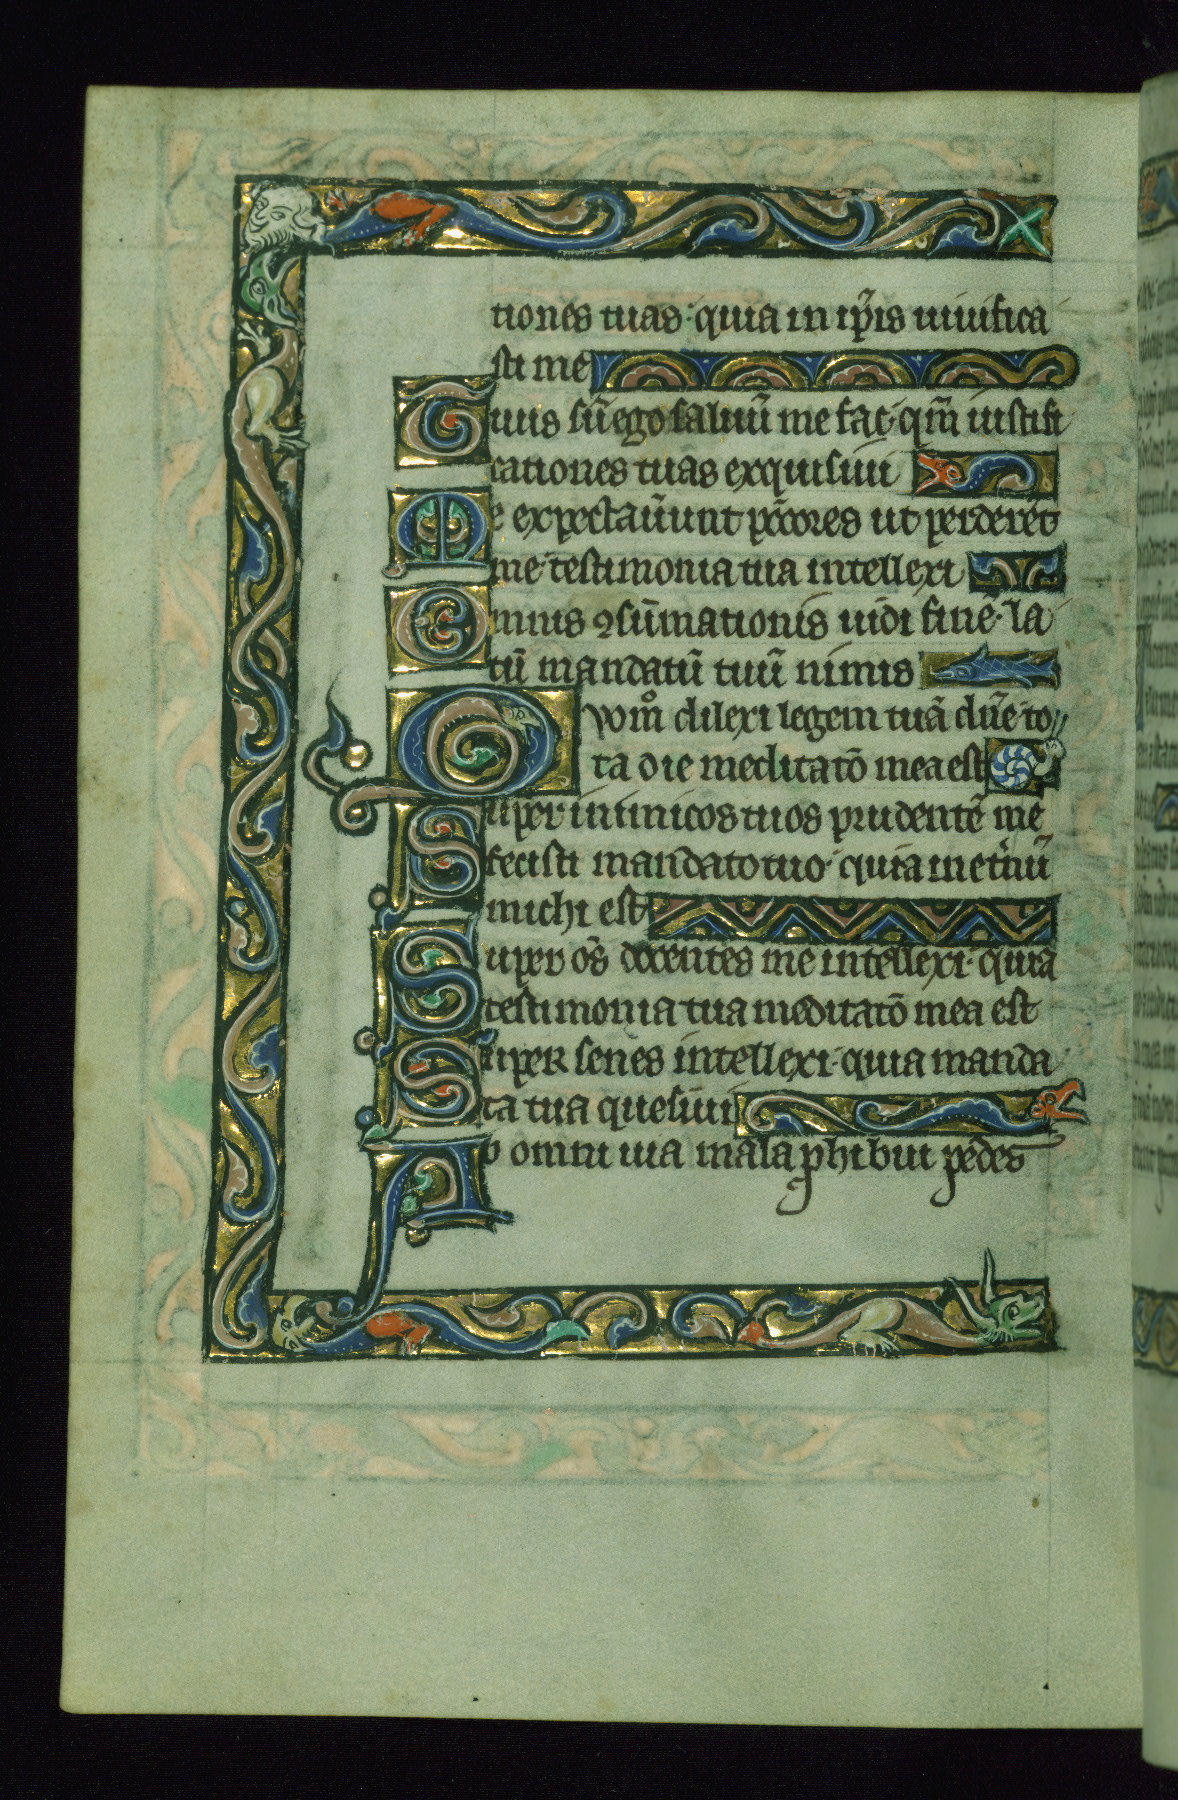 tiones tuas· quia in ip̄is uiuifica
sti me
Tuus sū ego saluū me fac· qm̄ iustifi
cationes tuas exquisiui
Me expectaūunt pc̄cores ut perderēt
me· testimonia tua intellexi
Omnis ꝯsūmationis uidi finē· la
tū mandatū tuū nimis
Quomo dilexi legem tuā dn̄e· to
ta die meditatō mea est
Super inimicos tuos prudentē me
fecisti mandato tuo· quia in et̄nū
michi est
Super oēs docentes me intellexi· quia
testimonia tua meditatō mea est
Super senes intellexi· quia manda
ta tua quesiui
Ab omni uia mala ꝓhibui pedes